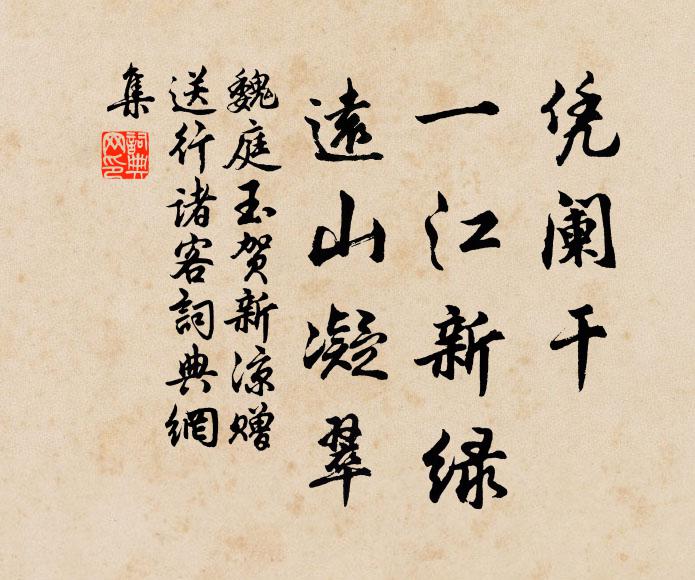 凭阑干
一江新绿
远山凝翠
魏庭玉贺新凉赠
送行诸客詞典網
集
詞典
网印